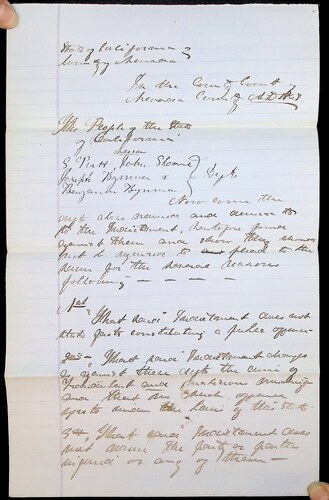 State of California
County of Nevada
In the County Court of
Nevada County
The People of the State
of California
versus
G. Pratt, John Sloan
Joseph Wynman &
Benjamin Wynman
Defts
Now come the
defts above named and demur
to the Indictment, heretofore found
against them and show they should
not be required to plead to the
same for the several reasons
following
1st
That said Indictment does not
state facts constituting a public offense
2nd, That said Indictment charges
against these defts the crime of
Fraudulent and
and that no such offense
exists under the laws of this State
3rd, That said Indictment does
not name the party or parties
injured or any of them